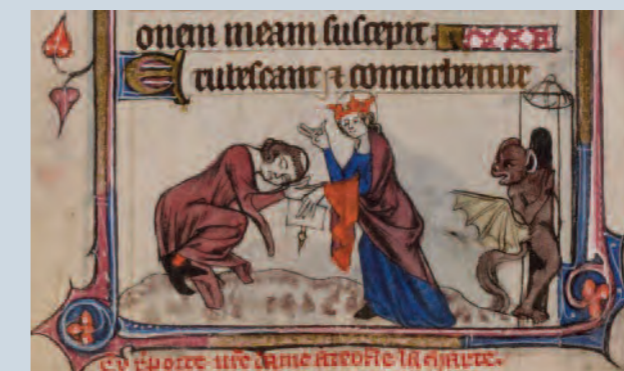 onem meam suscepit.
Erubescant ⁊ conturbentur
Cy aporte nre dame a teofle la chartre.